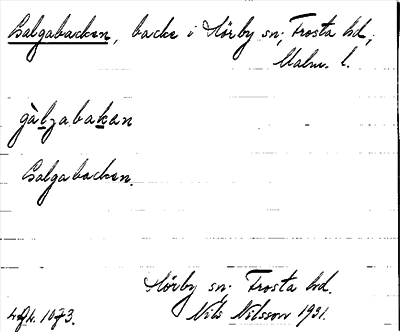 Galgabacken, backe i Hörby sn, Frosta hd,
Malm. l.
gàlgabakan
Galgabacken.
Hörby sn. Frosta hd.
Nils Nilsson 1931.